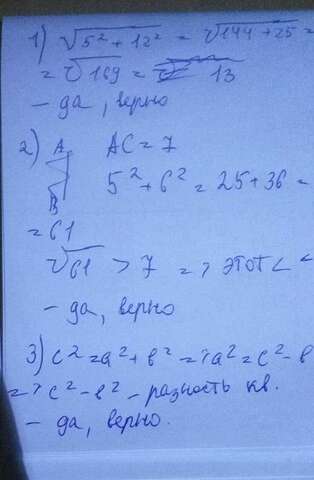 1) √5² + 12² = √144 + 25 =
= √169 = 13
- да, верно
2) A AC = 7
5² + 6² = 25 + 36 =
B
= 61
√61 > 7 => этот ∠ <
- да, верно
3) c² = a² + b² => a² = c² - b
=> c² - b² - разность кв.
- да, верно.